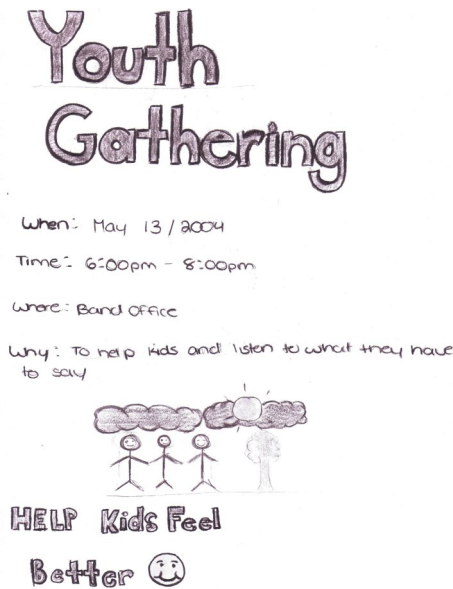 Youth
Gathering
When: May 13/2004
Time: 6:00pm - 8:00pm
Where: Band Office
Why: To help kids and listen to what they have
to say
HELP Kids Feel
Better